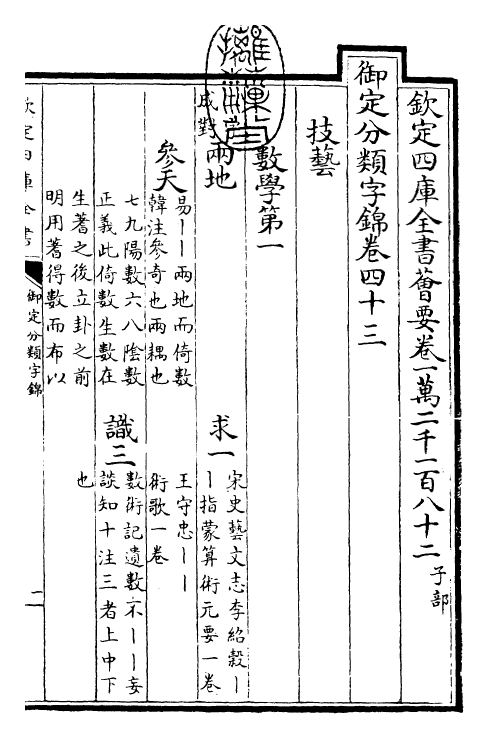 欽定四庫全書薈要卷一萬二千一百八十二子部
御定分類字錦卷四十三
技藝
數學第一
成對
兩地
求一
宋史藝文志李紹穀丨
丨指蒙算術元要一卷
王守忠丨丨
術歌一卷
參天
易丨丨兩地而倚數
韓注參奇也兩耦也
七九陽數六八陰數
正義此倚數生數在
生蓍之後立卦之前
明用蓍得數而布以
識三
數術記遺數不丨丨妄
談知十注三者上中下
也
欽定四庫全書
御定分類字錦
二